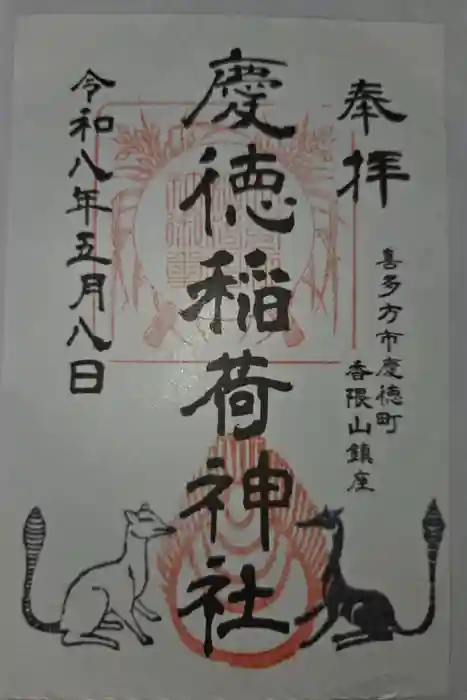 奉拝
喜多方市慶徳町
香隈山鎮座
慶徳稲荷神社
令和八年五月八日